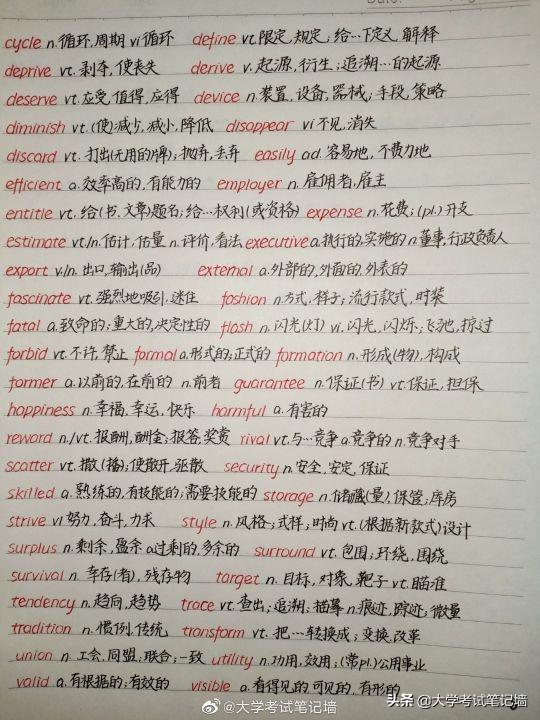 cycle n.循环,周期 vi循环 define vt.限定,规定;给…下定义,解释
deprive vt.剥夺,使丧失 derive v.起源,衍生;追溯…的起源
deserve vt.应受,值得,应得 device n.装置,设备,器械;手段,策略
diminish vt.(使)减少,减小,降低 disappear vi不见,消失
discard vt.打出(无用的牌);抛弃,丢弃 easily ad.容易地,不费力地
efficient a.效率高的,有能力的 employer n.雇佣者,雇主
entitle vt.给(书,文章)题名;给…权利(或资格) expense n.花费;(pl.)开支
estimate vt./n.估计,估量 n.评价,看法 executive a.执行的,实施的 n董事,行政负责人
export v./n.出口,输出(品) external a.外部的,外面的,外表的
fascinate vt.强烈地吸引,迷住 fashion n.方式,样子;流行款式,时装
fatal a.致命的;重大的,决定性的 flash n.闪光(灯) vi.闪光,闪烁;飞驰,掠过
forbid vt.不许,禁止 formal a.形式的;正式的 formation n.形成(物),构成
former a.以前的,在前的 n.前者 guarantee n.保证(书) vt.保证,担保
happiness n.幸福,幸运,快乐 harmful a.有害的
reward n./vt.报酬,酬金;报答,奖赏 rival vt.与…竞争 a.竞争的 n.竞争对手
scatter vt.撒(播);使散开,驱散 security n.安全,安定,保证
skilled a.熟练的,有技能的;需要技能的 storage n.储藏(量),保管;库房
strive vi努力,奋斗,力求 style n.风格;式样;时尚 vt.(根据新款式)设计
surplus n.剩余,盈余 a过剩的,多余的 surround vt.包围;环绕,围绕
survival n.幸存(者),残存物 target n.目标,对象,靶子 vt.瞄准
tendency n.趋向,趋势 trace vt.查出;追溯;描摹 n.痕迹,踪迹;微量
tradition n.惯例,传统 transform vt.把…转换成;变换,改革
union n.工会,同盟;联合;一致 utility n.功用,效用;(常pl.)公用事业
valid a.有根据的;有效的 visible a.看得见的,可见的,有形的
@大学考试笔记墙
头条 @大学考试笔记墙